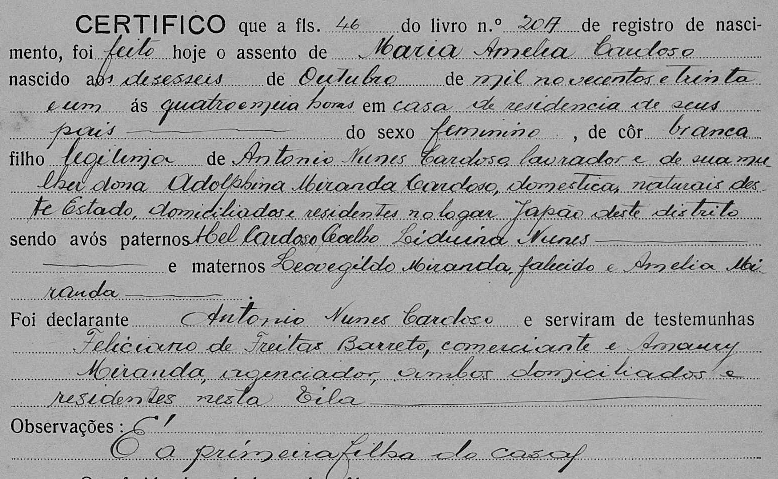 CERTIFICO que a fls. 46 do livro n.º 20A de registro de nasci-
mento, foi feito hoje o assento de Maria Amelia Cardoso
nascido aos desesseis de Outubro de mil novecentos e trinta
e um ás quatro e meia horas em casa de residencia de seus
pais do sexo feminino, de côr branca
filho legitima de Antonio Nunes Cardoso, lavrador e de sua mu
lher dona Adolphina Miranda Cardoso, domestica, naturais des-
te Estado, domiciliados e residentes no logar Japão deste distrito
sendo avós paternos Mel Cardoso Coalho Liduina Nunes
e maternos Leovegildo Miranda, falecido e Amelia Mi-
randa.
Foi declarante Antonio Nunes Cardoso e serviram de testemunhas
Feliciano de Freitas Barreto, comerciante e Amaury
Miranda, agenciador, ambos domiciliados e
residentes nesta Vila
Observações: É a primeira filha do casal